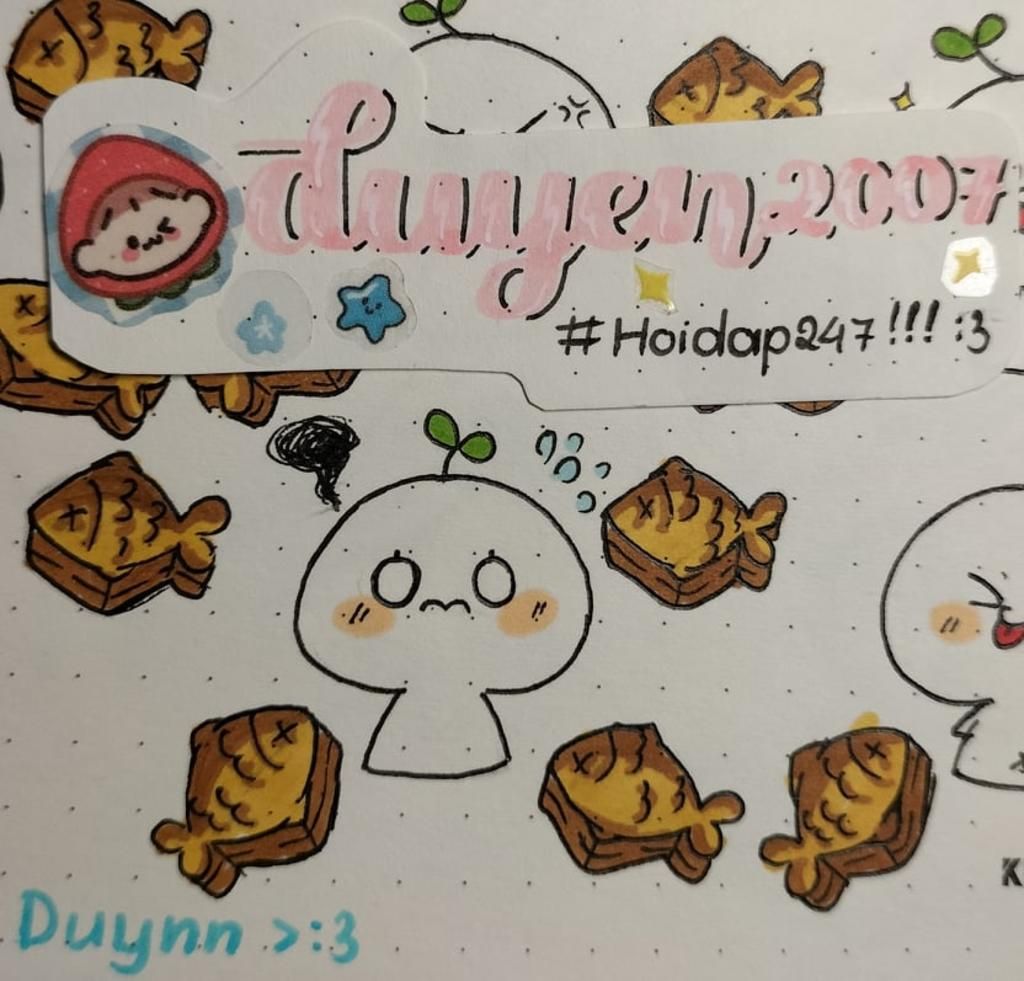 duyen2007
#Hoidap247!!! :3
K
Duynn >:3